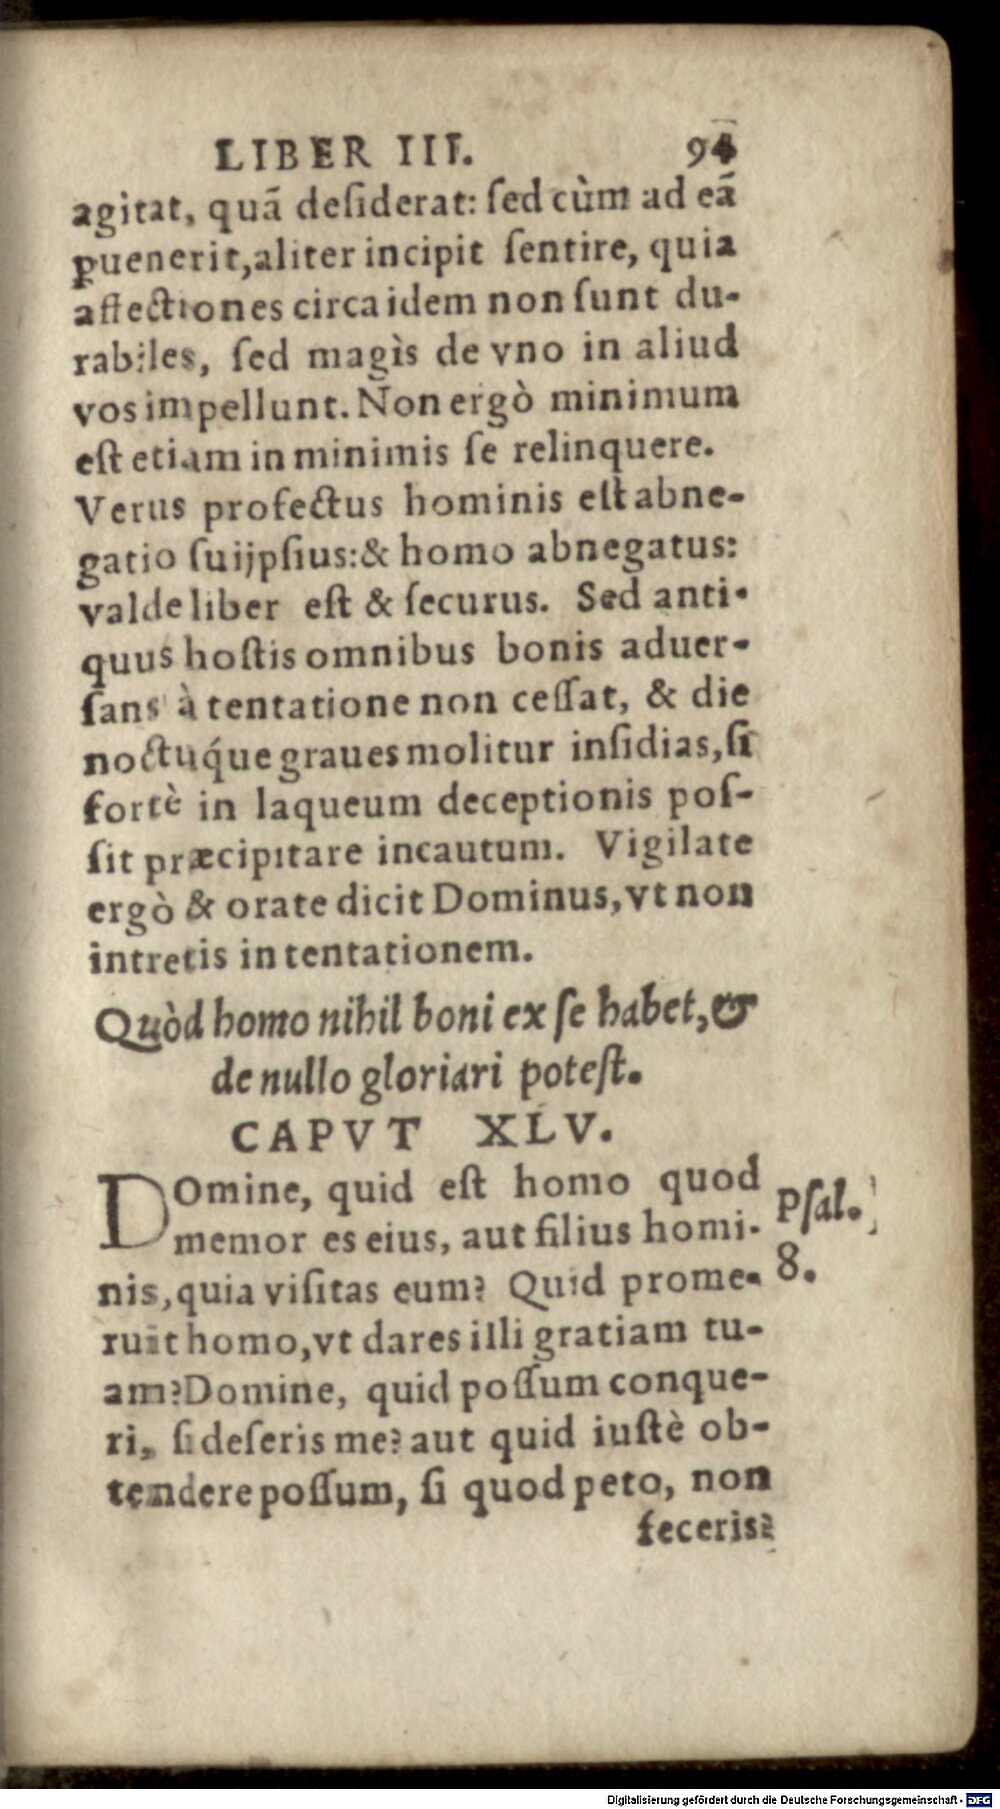 LIBER III. 94
agitat, quã deſiderat: ſed cùm ad eã
ꝑuenerit, aliter incipit ſentire, quia
affectiones circa idem non ſunt du-
rabiles, ſed magìs de vno in aliud
vos impellunt. Non ergò minimum
eſt etiam in minimis ſe relinquere.
Verus profectus hominis eſt abne-
gatio ſuijpſius: & homo abnegatus:
valde liber eſt & ſecurus. Sed anti-
quus hoſtis omnibus bonis aduer-
ſans à tentatione non ceſſat, & die
noctuq́ue graues molitur inſidias, ſi
fortè in laqueum deceptionis poſ-
ſit præcipitare incautum. Vigilate
ergò & orate dicit Dominus, vt non
intretis in tentationem.
Quòd homo nihil boni ex ſe habet, &
de nullo gloriari poteſt.
CAPVT XLV.
DOmine, quid eſt homo quod
memor es eius, aut filius homi-
nis, quia viſitas eum? Quid prome-
ruit homo, vt dares illi gratiam tu-
am? Domine, quid poſſum conque-
ri, ſi deſeris me? aut quid iuſtè ob-
tendere poſſum, ſi quod peto, non
feceris?
Pſal.
8.
Digitalisierung gefördert durch die Deutsche Forschungsgemeinschaft - DFG